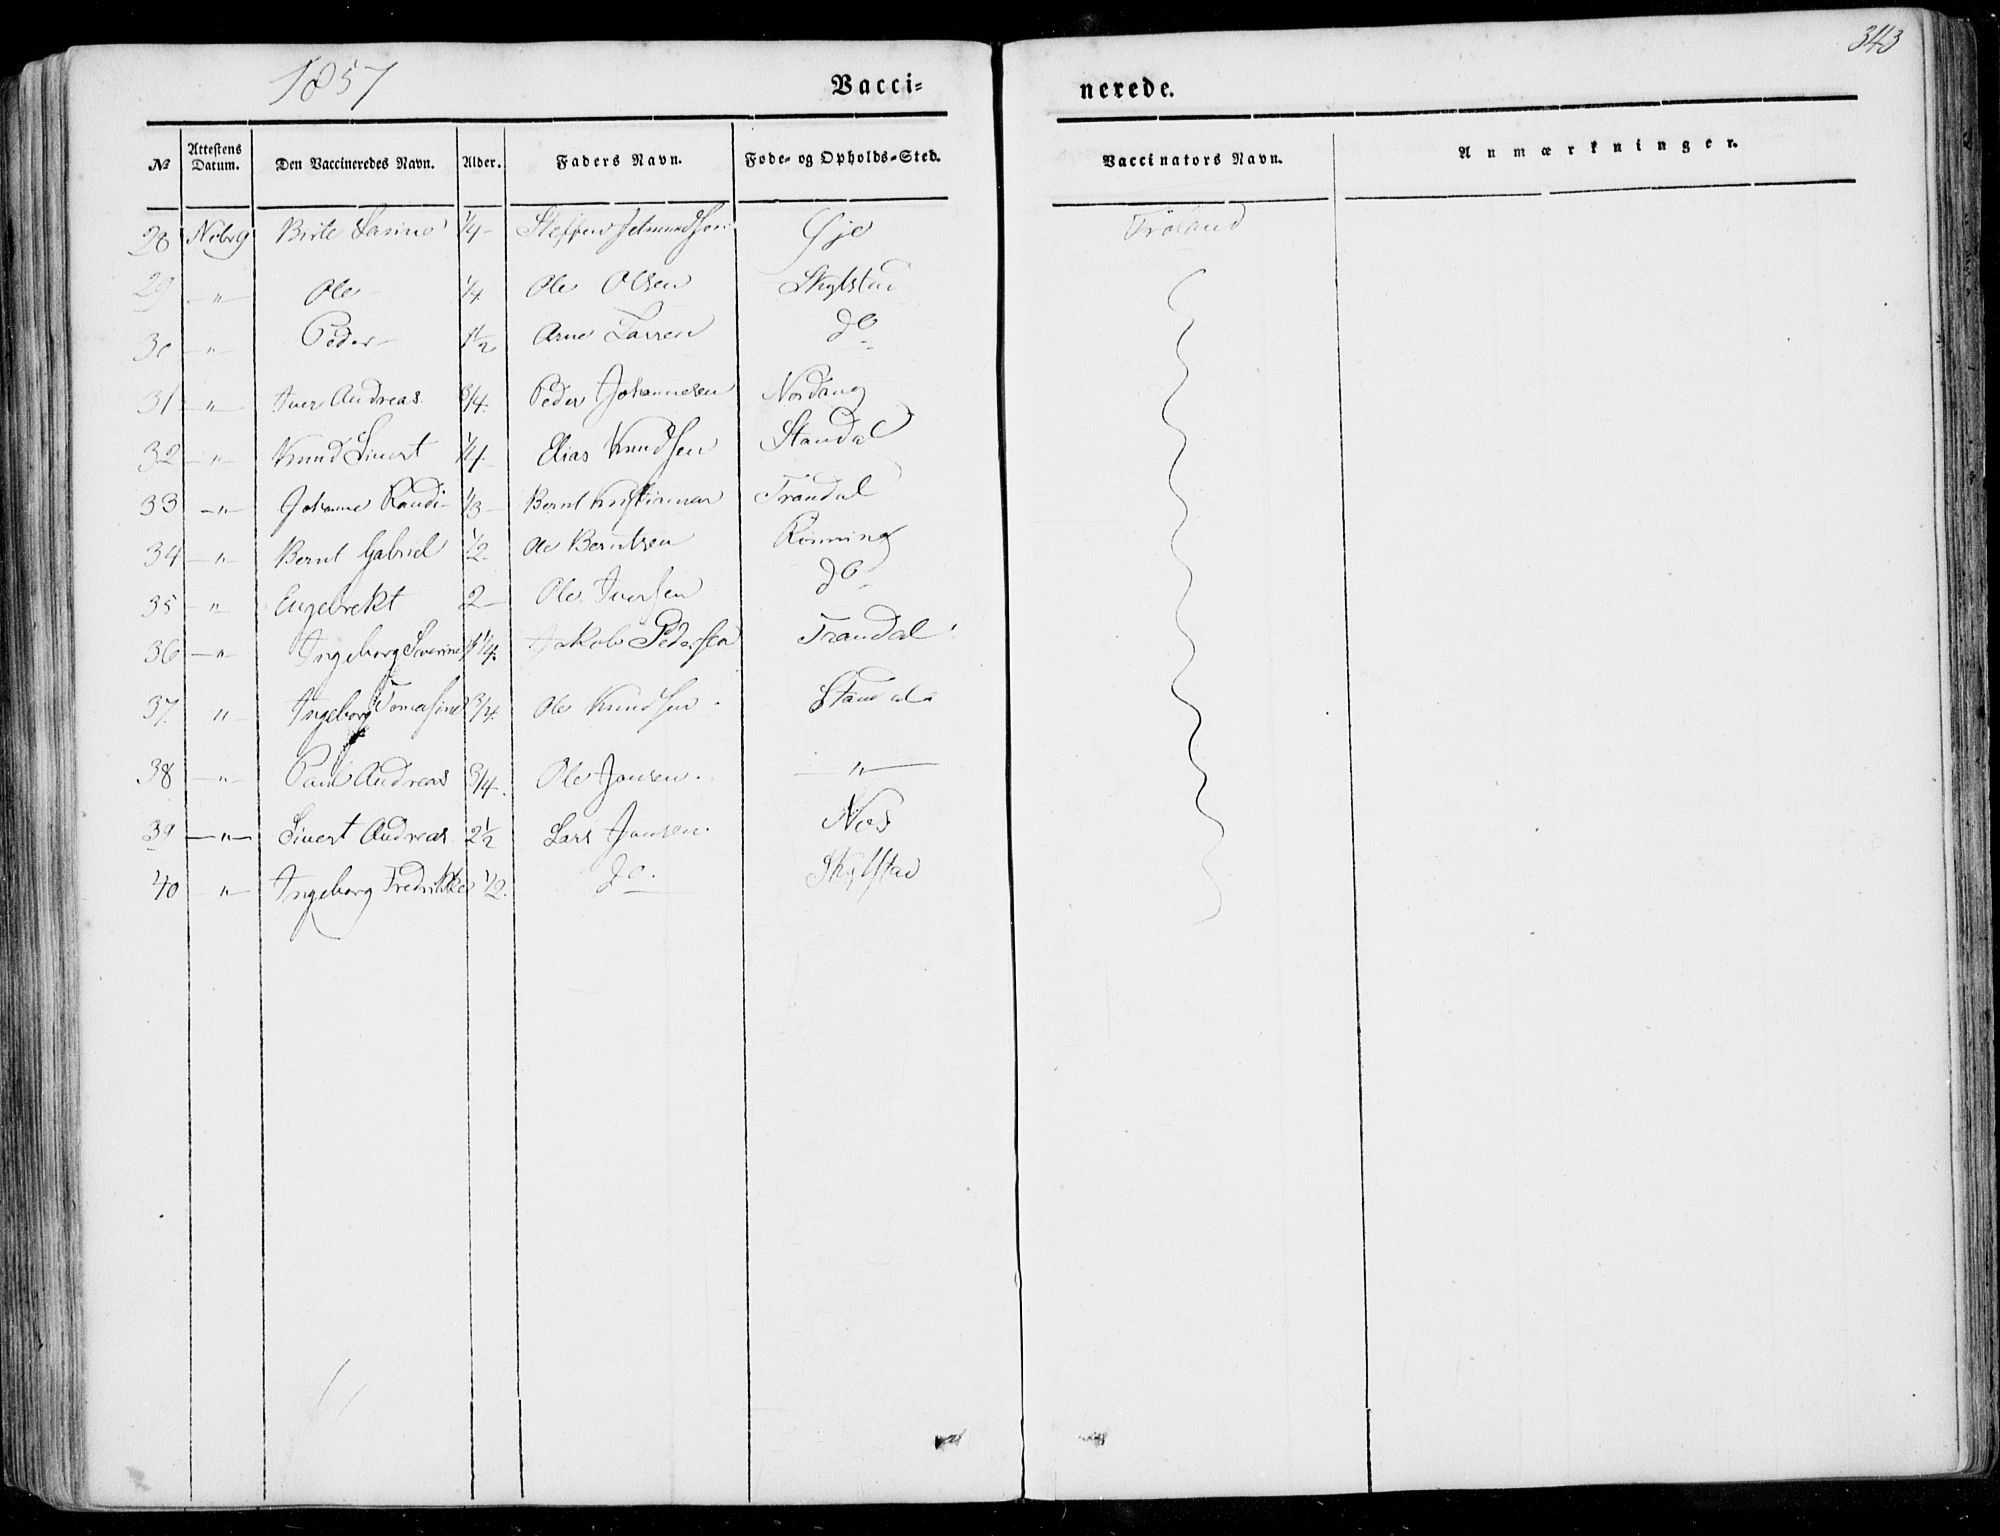 343
1857
Vacci- nerede.
No Attestens Datum. Den Vaccineredes Navn. Alder. Faders Navn. Føde- og Opholds-Sted. Vaccinators Navn. Anmærkninger.
28 Novbr 9 Birte 1/4 - Steffen Øje
29 -"- Ole - 1/4 Ole Olsen Skylstad
30 -"- Peder - 1 1/2 Arne do
31 -"- Iver Andreas 3/4. Peder Johannesen Nordang
32 -"- Knud Sivert 1/4. Elias Knudsen Standal
33 -"- Johanne Randi - 1/3 - Bernt Trandal
34 -"- Bernt Gabriel 1/2 Ole Berntsen Rønning
35 -"- Engebrekt 2 - Ole Iversen do
36 -"- Ingeborg Severine 1 1/4. Jakob Pedersen Trandal
37 "- Ingeborg Tomasine 3/4. Ole Knudsen Standal
38 -"- Paul Andreas 3/4. Ole Jonsen. -"-
39 -"- Sivert Andreas 2 1/2 Lars Jonsen.
40 -"- Ingeborg Fredrikke 1/2. do. Skylstad